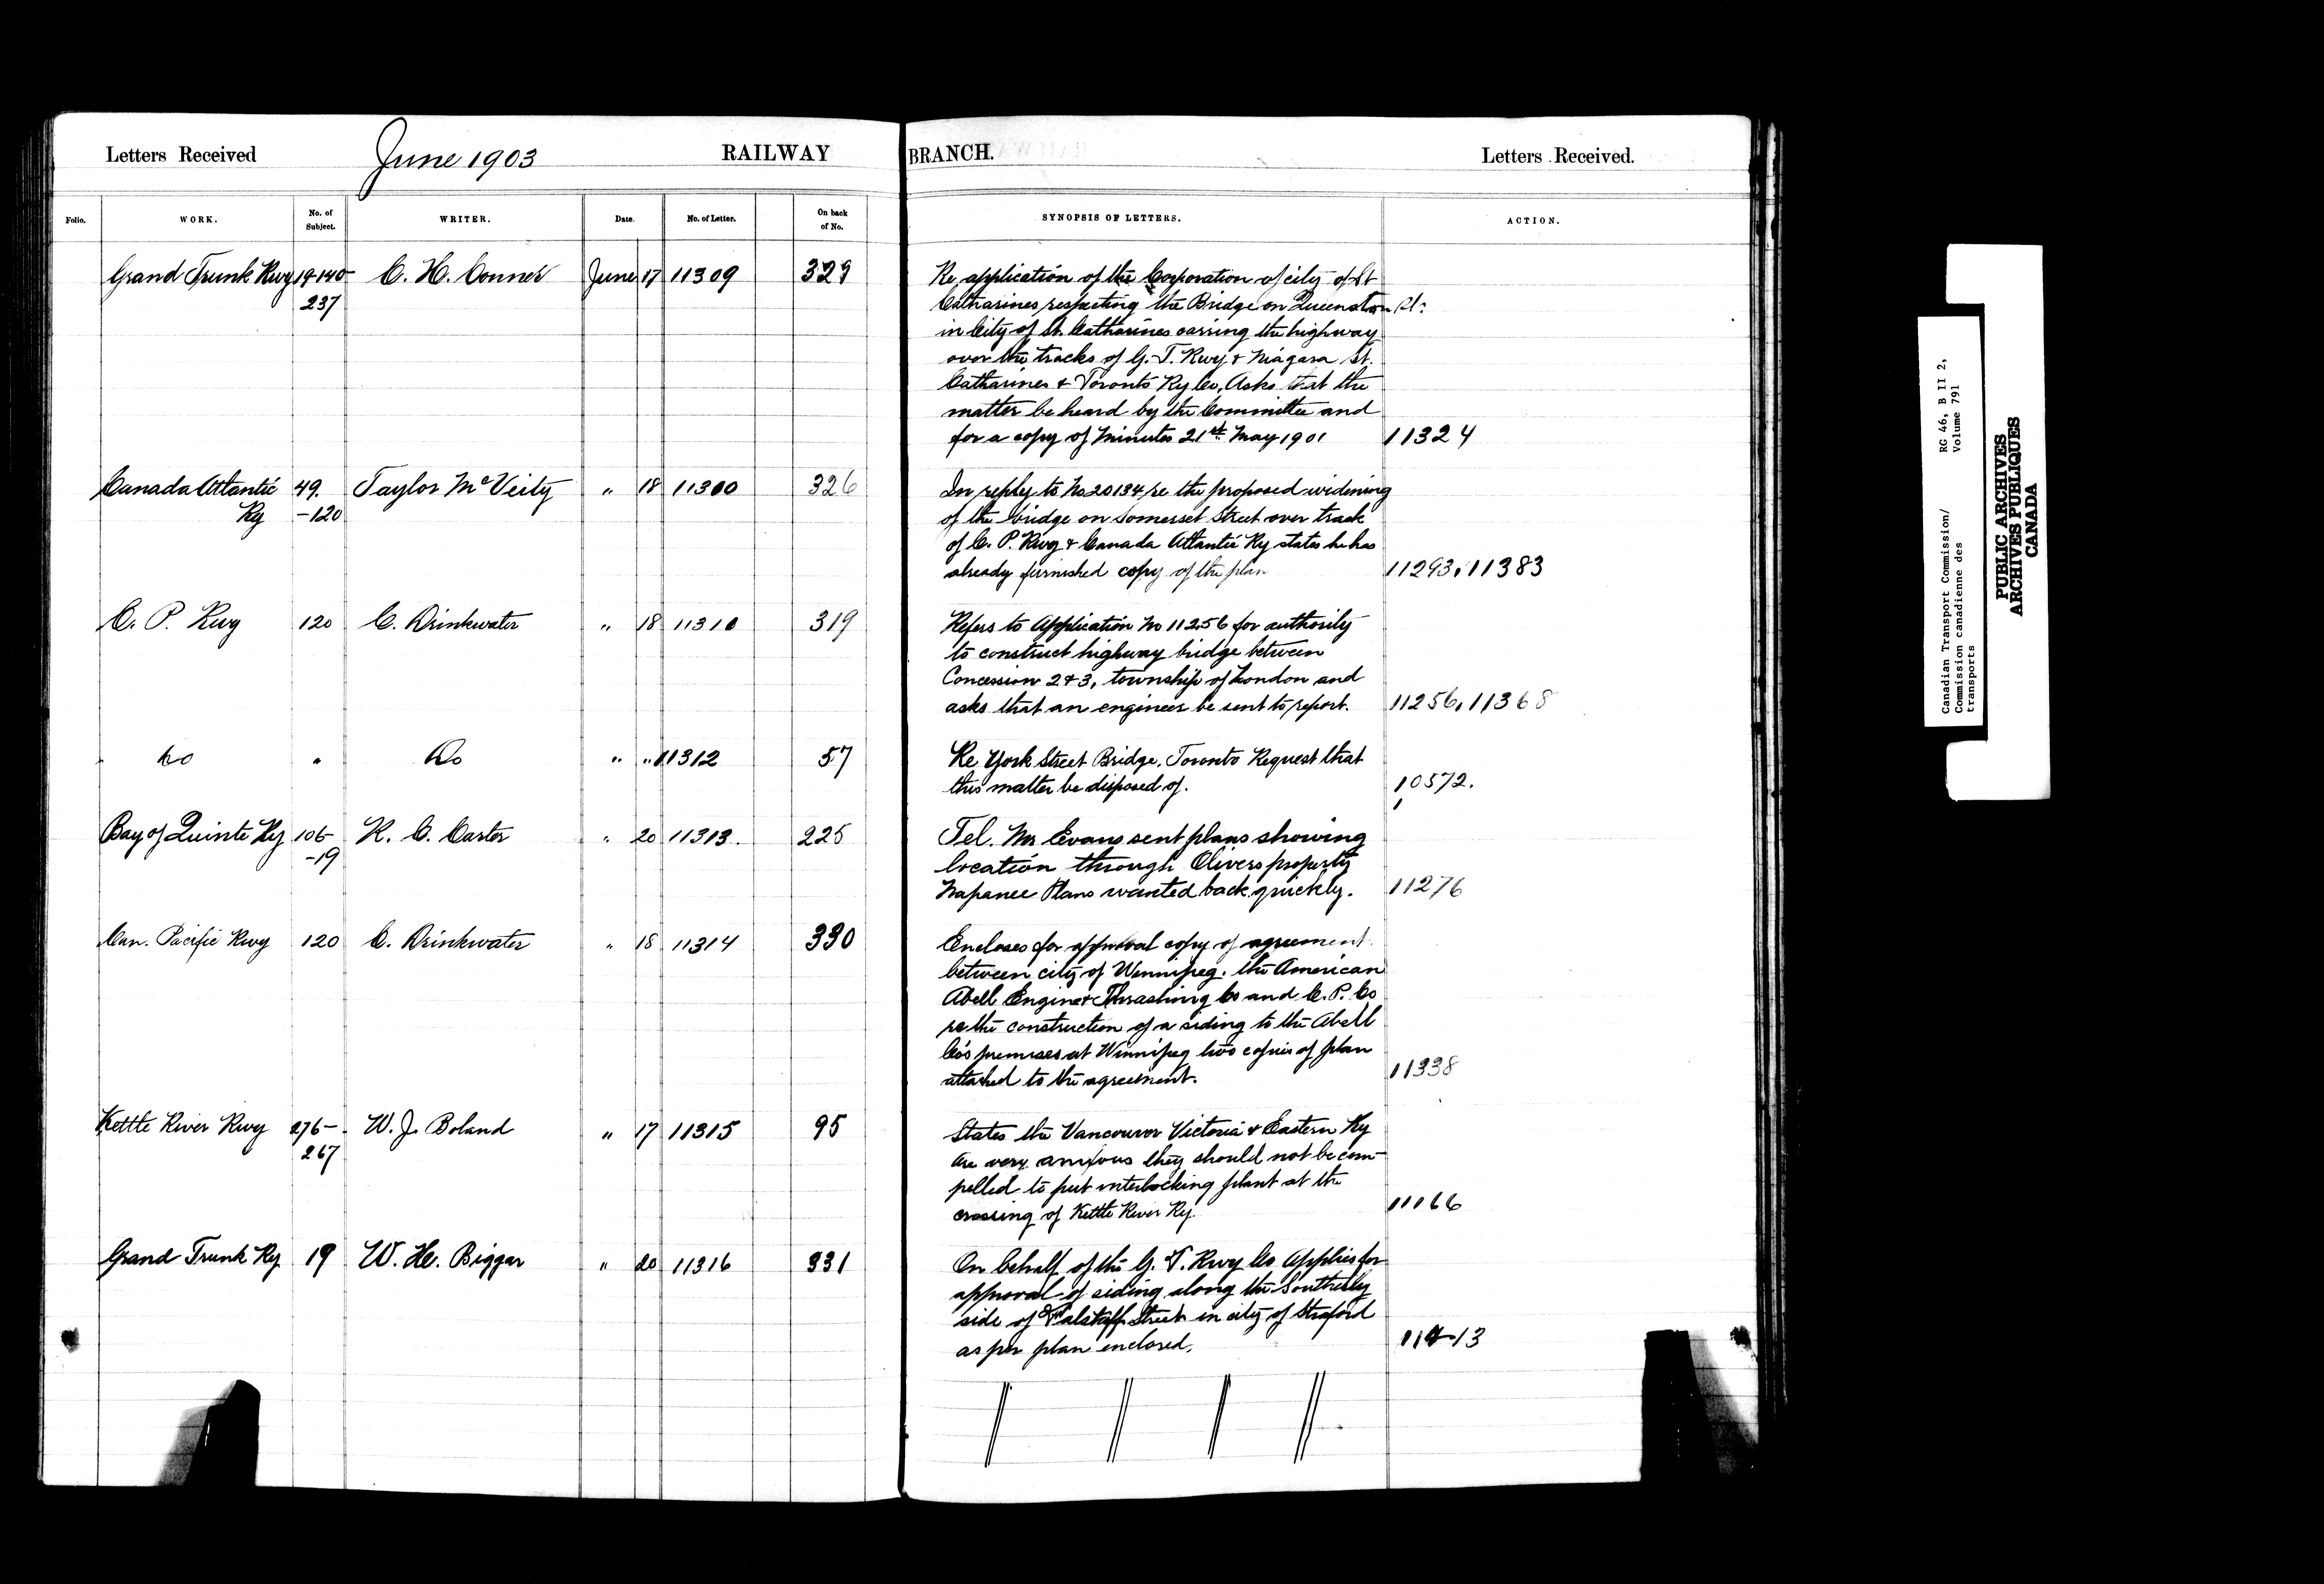 Letters Received June 1903 RAILWAY BRANCH. Letters Received.
Folio. WORK. No. of Subject. WRITER. Date. No. of Letter. On back of No. SYNOPSIS OF LETTERS. ACTION.
Grand Trunk Rwy 19-140- C. H. Conner June 17 11309 329 Re application of the Corporation of city of St
237 Catharines respecting the Bridge on Queenston St.
in City of St. Catharines carring the highway
over the tracks of G. T. Rwy & Niagara St.
Catharines & Toronto Ry Co, Asks that the
matter be heard by the Committee and
for a copy of Minutes 21st May 1901 11324
Canada Atlantic 49. Taylor McVeity " 18 11300 326 In reply to No 20134 re the proposed widening
Ry -120 of the bridge on Somerset Street over track
of C. P. Rwy & Canada Atlantic Ry states he has
already furnished copy of the plan 11293, 11383
C. P. Rwy 120 C. Drinkwater " 18 11310 319 Refers to Application No 11256 for authority
to construct highway bridge between
Concession 2 & 3, township of London and
asks that an engineer be sent to report. 11256, 11368
Do " Do " " 11312 57 Re York Street Bridge, Toronto Request that
this matter be disposed of. 10572.
Bay of Quinte Ry 106- R. C. Carter " 20 11313. 225 Tel. Mr Evans sent plans showing
-19 location through Olivers property
Napanee Plans wanted back quickly. 11276
Can. Pacific Rwy 120 C. Drinkwater " 18 11314 330 Encloses for approval copy of agreement
between city of Winnipeg. the American
Abell Engine & Thrashing Co and C. P. Co
re the construction of a siding to the Abell
Co's premises at Winnipeg two copies of plan
attached to the agreement. 11338
Kettle River Rwy 276- W. J. Boland " 17 11315 95 States the Vancouver Victoria & Eastern Ry
267 are very anxious they should not be com-
pelled to put interlocking plant at the
crossing of Kettle River Ry. 11166
Grand Trunk Ry 19 W. H. Biggar " 20 11316 331 On behalf of the G. T. Rwy Co Applies for
approval of siding along the Southerly
side of Falstaff Street in city of Straford
as per plan enclosed. 11413
Canadian Transport Commission/ RG 46, B II 2,
Commission canadienne des Volume 791
transports
PUBLIC ARCHIVES
ARCHIVES PUBLIQUES
CANADA